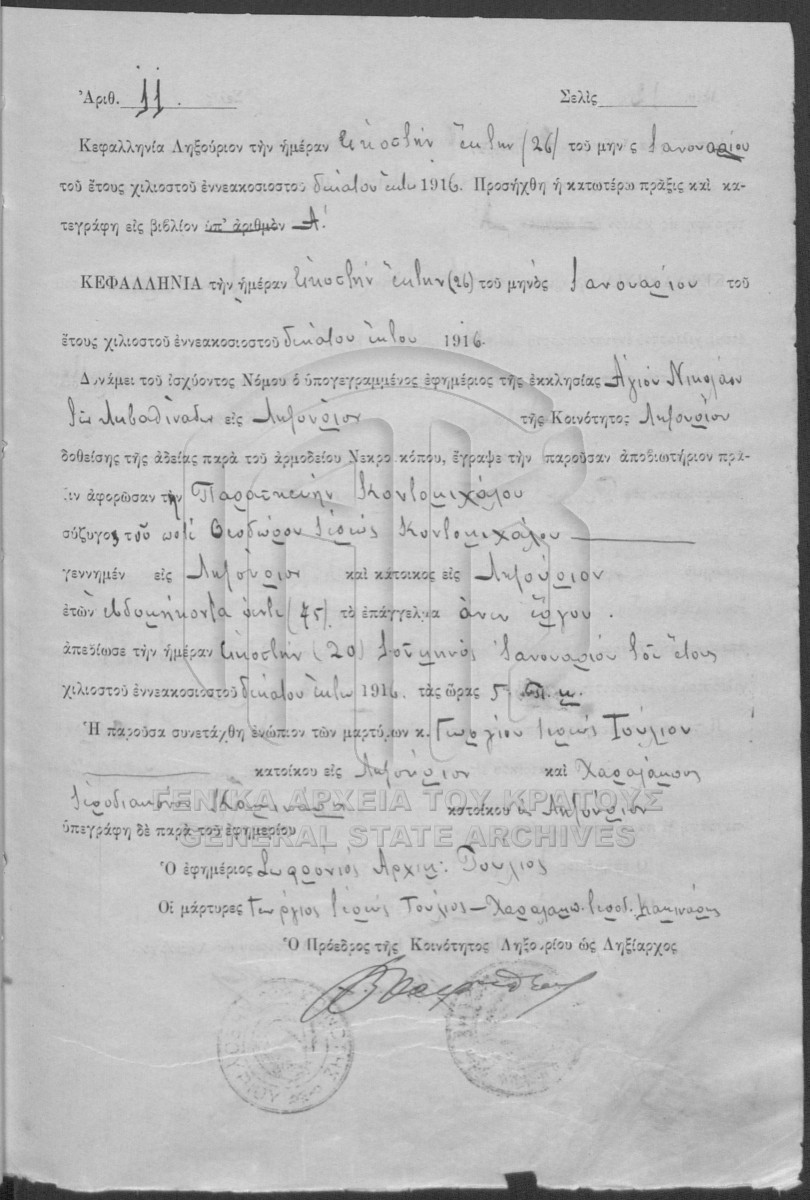 Ἀριθ. 11. Σελὶς
Κεφαλληνία Ληξούριον τὴν ἡμέραν εἰκοστὴν ἕκτην (26) τοῦ μην ς Ἰανουαρίου
τοῦ ἔτους χιλιοστοῦ ἐννεακοσιοστοῦ δεκάτου ἕκτου 1916. Προσήχθη ἡ κατωτέρω πρᾶξις καὶ κα-
τεγράφη εἰς βιβλίον ὑπ' ἀριθμὸν Α΄.
ΚΕΦΑΛΛΗΝΙΑ τὴν ἡμέραν εἰκοστὴν ἕκτην (26) τοῦ μηνὸς Ἰανουαρίου τοῦ
ἔτους χιλιοστοῦ ἐννεακοσιοστοῦ δεκάτου ἕκτου 1916.
Δυνάμει τοῦ ἰσχύοντος Νόμου ὁ ὑπογεγραμμένος ἐφημέριος τῆς ἐκκλησίας Ἁγίου Νικολάου
τῶν Λιβαθινάδων εἰς Ληξούριον τῆς Κοινότητος Ληξουρίου
δοθείσης τῆς ἀδείας παρὰ τοῦ ἁρμοδείου Νεκρο κόπου, ἔγραψε τὴν παροῦσαν ἀποβιωτήριον πρᾶ-
ξιν ἀφορῶσαν τὴν Παρασκευὴν Κοντομιχάλου
σύζυγος τοῦ ποτὲ Θεοδώρου ἱερέως Κοντομιχάλου
γεννημέν εἰς Ληξούριον καὶ κάτοικος εἰς Ληξούριον
ἐτῶν ἑβδομήκοντα πέντε (75) τὸ ἐπάγγελμα ἄνευ ἔργου.
ἀπεβίωσε τὴν ἡμέραν εἰκοστὴν (20) τοῦ μηνὸς Ἰανουαρίου τοῦ ἔτους
χιλιοστοῦ ἐννεακοσιοστοῦ δεκάτου ἕκτου 1916. τὰς ὥρας 5 π. μ.
Ἡ παροῦσα συνετάχθη ἐνώπιον τῶν μαρτύρων κ. Γεωργίου ἱερέως Τούλιου
κατοίκου εἰς Ληξούριον καὶ Χαραλάμπους
ἱεροδιακόνου Κακιναρη κατοίκου εἰς Ληξούριον
ὑπεγράφη δὲ παρὰ τοῦ ἐφημερίου
ΓΕΝΙΚΑ ΑΡΧΕΙΑ ΤΟΥ ΚΡΑΤΟΥΣ
GENERAL STATE ARCHIVES
Ὁ ἐφημέριος Σωφρόνιος Ἀρχιμ: Τούλιος
Οἱ μάρτυρες Γεώργιος ἱερεὺς Τούλιος – Χαραλαμπ. ἱεροδ. Κακινάρης
Ὁ Πρόεδρος τῆς Κοινότητος Ληξουρίου ὡς Ληξίαρχος